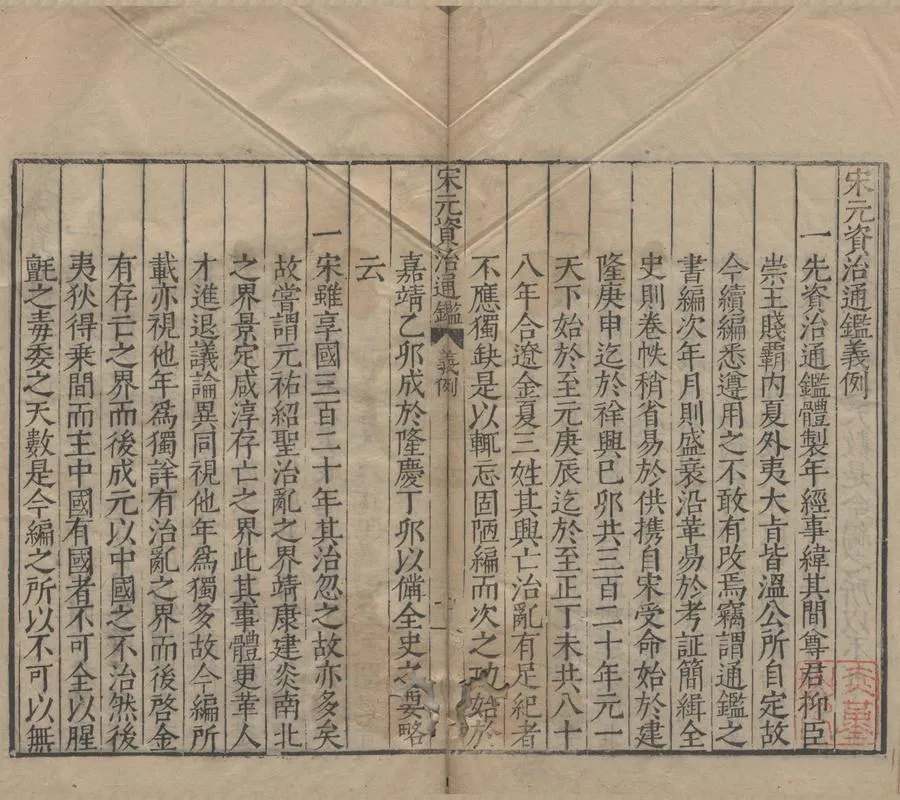 宋元資治通鑑義例
一先資治通鑑體製年經事緯其間尊君抑臣
崇王賤霸内夏外夷大㫖皆溫公所自定故
今續編悉遵用之不敢有改焉竊謂通鑑之
書編次年月則盛衰沿革易於考証簡緝全
史則卷帙稍省易於供携自宋受命始於建
隆庚申迄於祥興巳卯共三百二十年元一
天下始於至元庚辰迄於至正丁未共八十
八年合遼金夏三姓其興亡治亂有足紀者
不應獨缺是以輒忘固陋編而次之功始於
宋元資治通鑑 義例 一
嘉靖乙卯成於隆慶丁卯以備全史之要略
云
一宋雖享國三百二十年其治忽之故亦多矣
故嘗謂元祐紹聖治亂之界靖康建炎南北
之界景定咸淳存亡之界此其事體更革人
才進退議論異同視他年爲獨多故今編所
載亦視他年爲獨詳有治亂之界而後啓金
有存亡之界而後成元以中國之不治然後
夷狄得乗間而主中國有國者不可全以腥
氈之毒委之天數是今編之所以不可以無